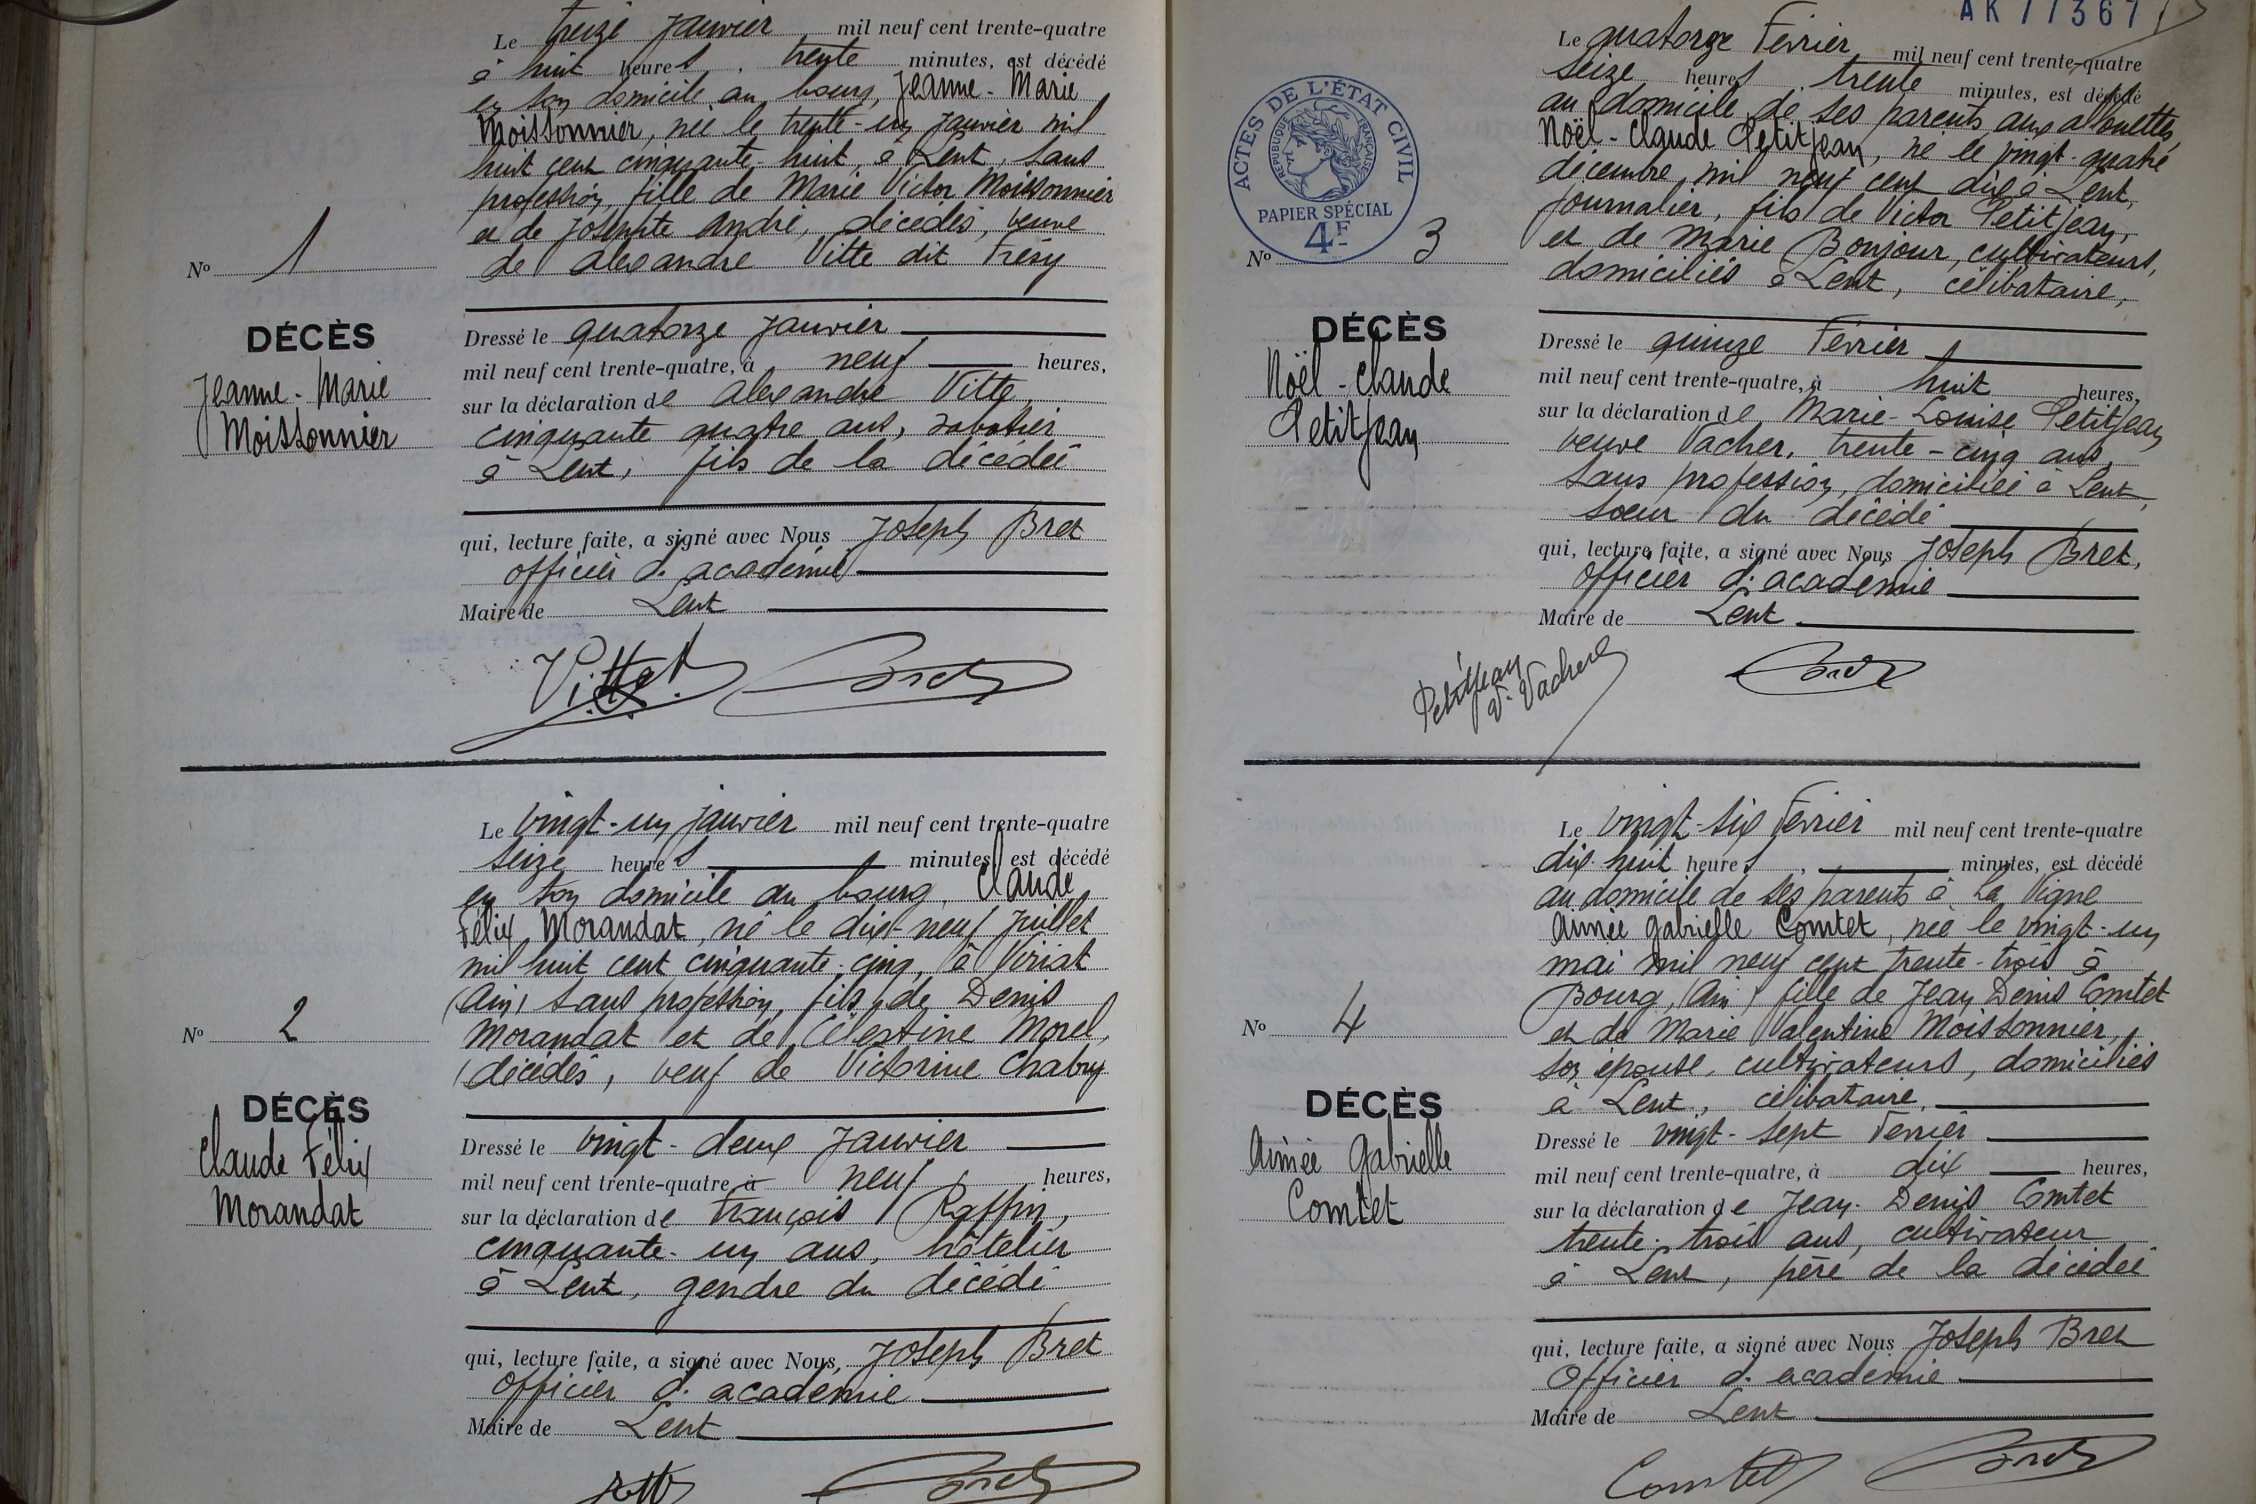 Le treize Janvier mil neuf cent trente-quatre
à huit heures, trente minutes, est décédé
en son domicile au bourg, Jeanne-Marie
Moissonnier, née le trente-un janvier mil
huit cent cinquante-huit, à Lent, sans
profession, fille de Marie Victor Moissonnier
et de Josephte André, décédés, veuve
de Alexandre Vitte dit Frésy
No 1
DÉCÈS
Jeanne-Marie
Moissonnier
Dressé le quatorze Janvier
mil neuf cent trente-quatre, à neuf heures,
sur la déclaration de Alexandre Vitte,
cinquante quatre ans, sabotier
à Lent, fils de la décédée
qui, lecture faite, a signé avec Nous Joseph Bret
officier d'académie
Maire de Lent
Bret
Le vingt-un janvier mil neuf cent trente-quatre
seize heures minutes, est décédé
en son domicile au bourg, Claude
Félix Morandat, né le dix-neuf juillet
mil huit cent cinquante-cinq, à Viriat
(Ain) sans profession, fils de Denis
Morandat et de Célestine Morel,
décédés, veuf de Victorine Chabry
No 2
DÉCÈS
Claude Félix
Morandat
Dressé le vingt-deux Janvier
mil neuf cent trente-quatre à neuf heures,
sur la déclaration de François Raffin,
cinquante-un ans, hôtelier
à Lent, gendre du décédé
qui, lecture faite, a signé avec Nous, Joseph Bret
Officier d'académie
Maire de Lent
Bret
AK77367
Le quatorze Février mil neuf cent trente-quatre
seize heures trente minutes, est décédé
au domicile de ses parents aux alouettes
Noël-Claude Petitjean, né le vingt-quatre
décembre mil neuf cent dix à Lent,
journalier, fils de Victor Petitjean,
et de Marie Bonjour, cultivateurs,
domiciliés à Lent, célibataire,
ACTES DE L'ÉTAT CIVIL
REPUBLIQUE FRANÇAISE
PAPIER SPÉCIAL
4F
No 3
DÉCÈS
Noël-Claude
Petitjean
Dressé le quinze Février
mil neuf cent trente-quatre, à huit heures,
sur la déclaration de Marie-Louise Petitjean
veuve Vacher, trente-cinq ans,
sans profession, domiciliée à Lent,
soeur du décédé
qui, lecture faite, a signé avec Nous Joseph Bret,
Officier d'académie
Maire de Lent
Petitjean
Vve Vacher
Bret
Le vingt-six Février mil neuf cent trente-quatre
dix-huit heures, minutes, est décédé
au domicile de ses parents à La Vigne
Aimée Gabrielle Comtet, née le vingt-un
mai mil neuf cent trente-trois à
Bourg (Ain) fille de Jean Denis Comtet
et de Marie Valentine Moissonnier,
son épouse, cultivateurs, domiciliés
à Lent, célibataire,
No 4
DÉCÈS
Aimée Gabrielle
Comtet
Dressé le vingt-sept Février
mil neuf cent trente-quatre, à dix heures,
sur la déclaration de Jean-Denis Comtet
trente-trois ans, cultivateur
à Lent, père de la décédée
qui, lecture faite, a signé avec Nous Joseph Bret
Officier d'académie
Maire de Lent
Comtet
Bret